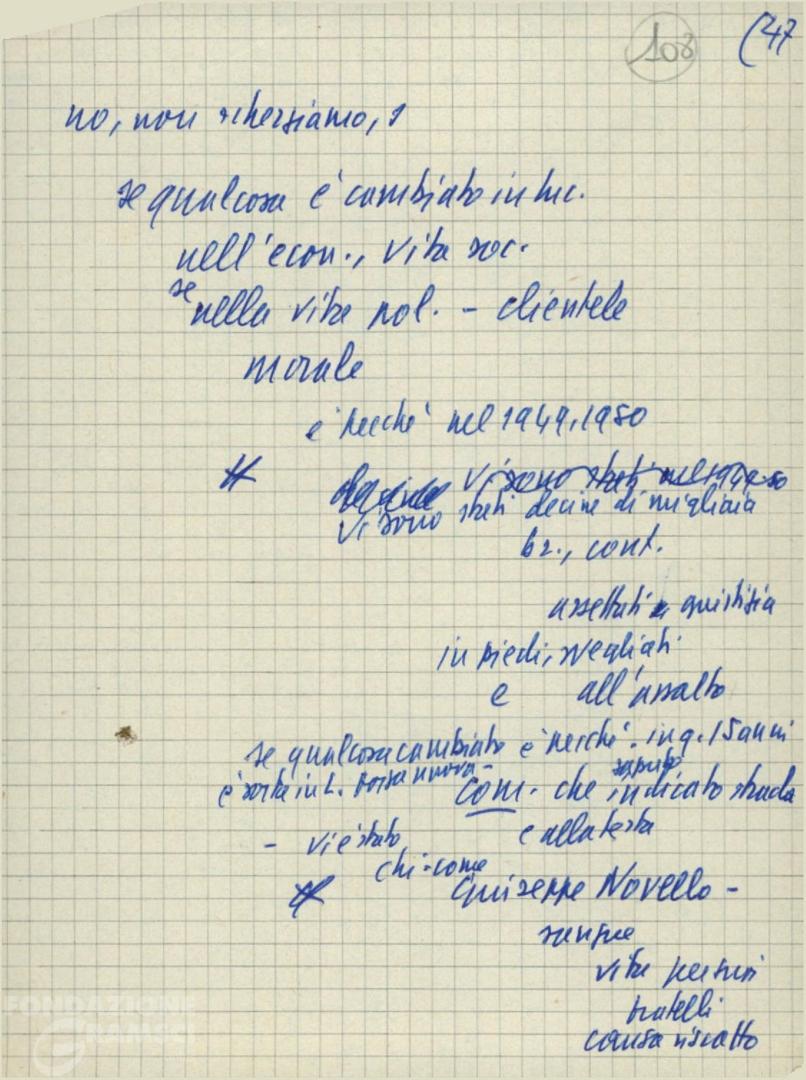 108 (47
no, non scherziamo, s
se qualcosa è cambiato in Luc.
nell'econ., vita soc.
se nella vita pol. - clientele
morale
è perché nel 1949, 1950
vi sono stati nel 1949-50
vi sono stati decine di migliaia
br., cont.
assetati giustizia
in piedi, svegliati
e all'assalto
se qualcosa cambiato è perché in q. 15 anni
è sorta in L. forza nuova - saputo
com. che indicato strada
e alla testa
- vi è stato
chi - come
Giuseppe Novello -
sangue
vita per suoi
fratelli
causa riscatto
FONDAZIONE
GRAMSCI